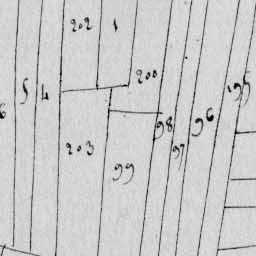 202 1
200
195
5 4
6
98 96
97
203
99